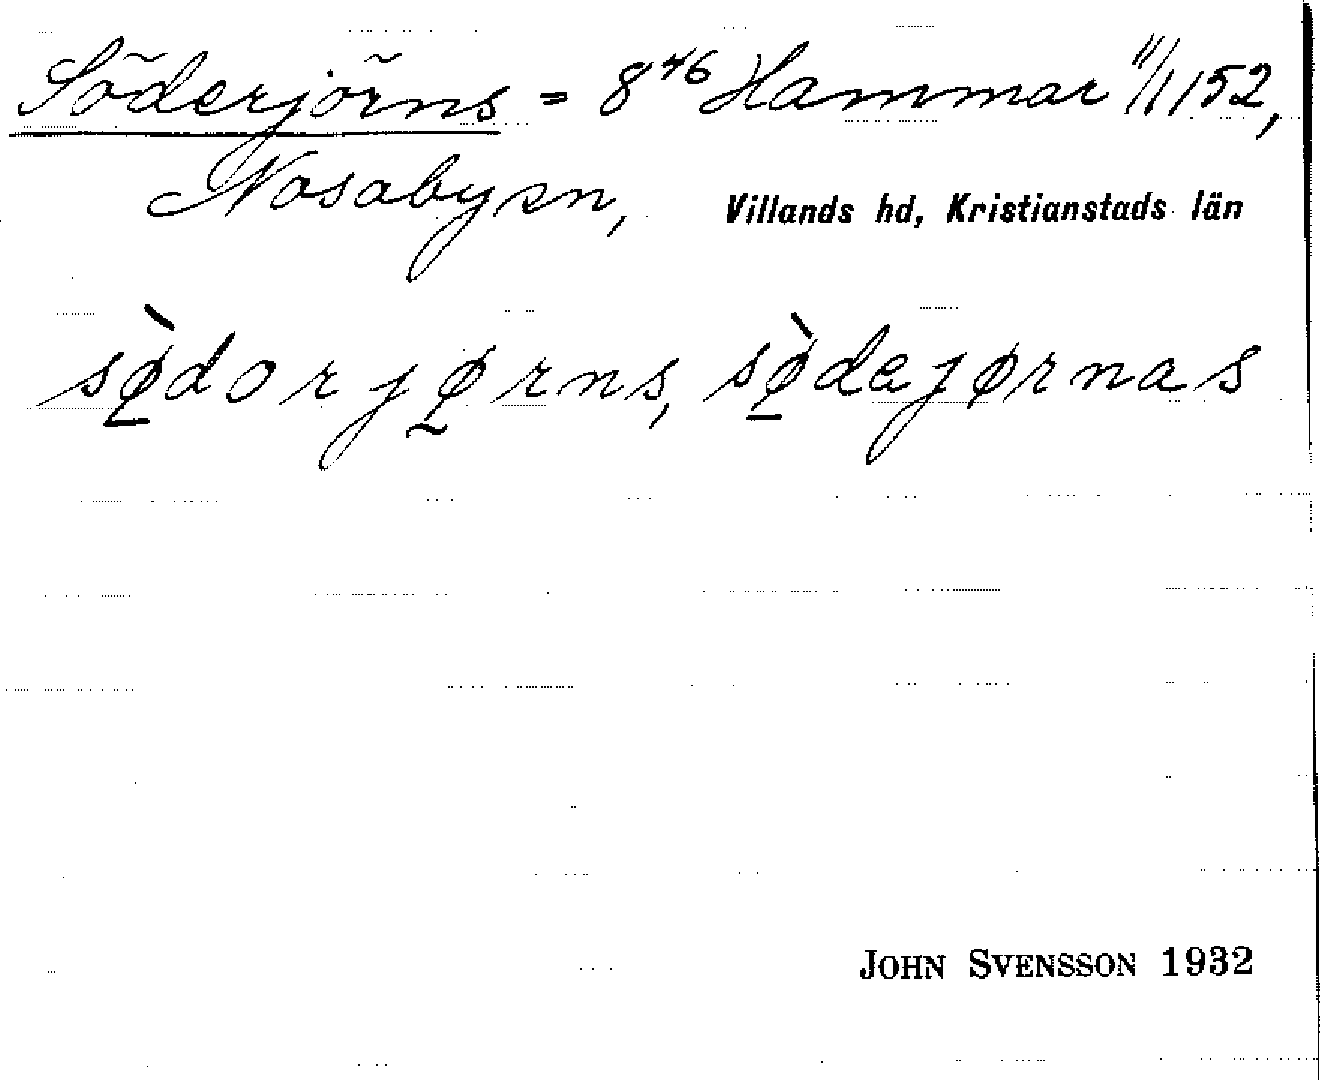 Söderjörns = 8⁴⁶ Hammar 11/1 152,
Nosabysn,
Villands hd, Kristianstads län
sø̀dorjørns, sø̀dejørnas
JOHN SVENSSON 1932